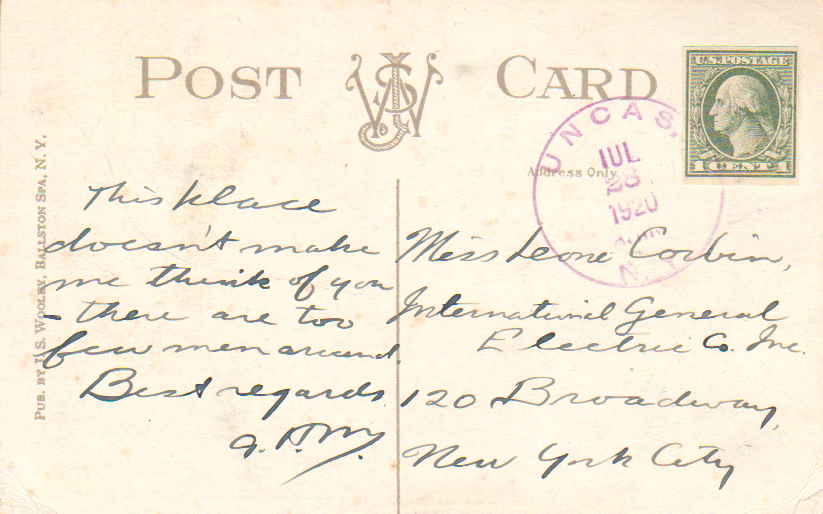 POST CARD
U.S. POSTAGE
1 CENT 1
UNCAS,
JUL
28
1920
N.Y.
Address Only
PUB. BY J. S. WOOLEY, BALLSTON SPA, N. Y.
This place
doesn't make
me think of you
- there are too
few men around.
Best regards
Miss Leone Corbin,
International General
Electric Co. Inc.
120 Broadway,
New York City